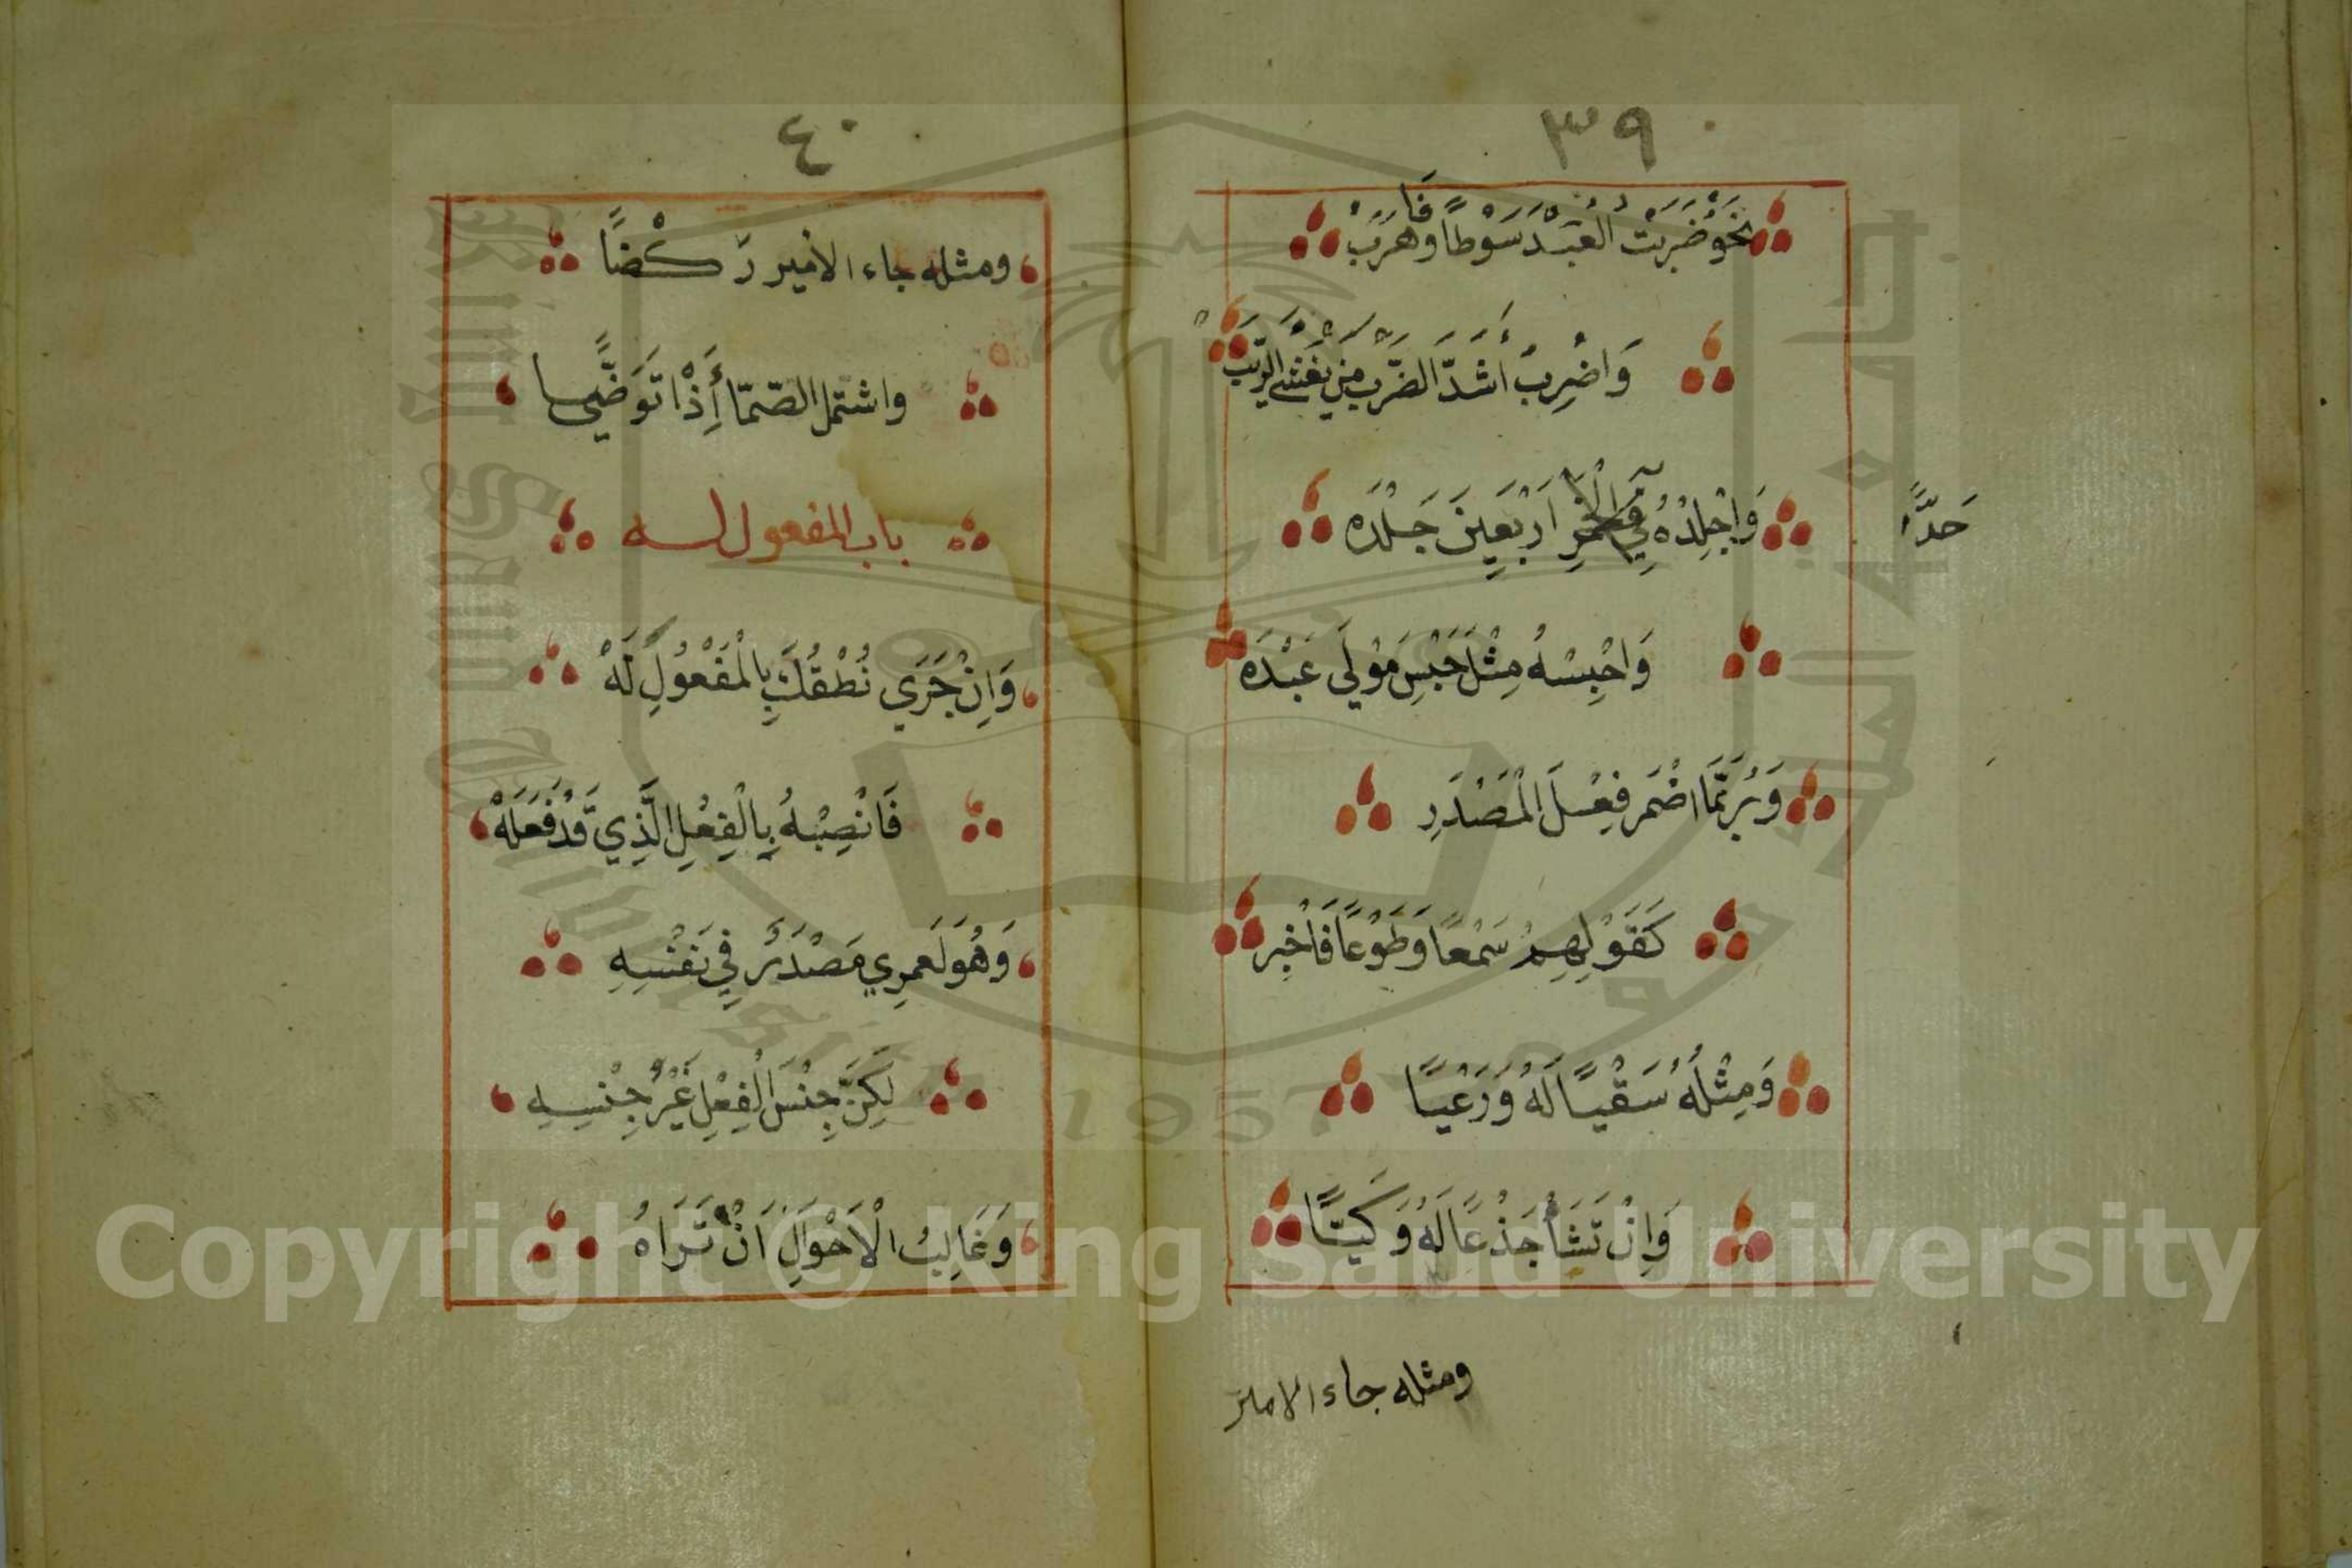 ٣٩
نَحْوُ ضَرَبْتُ الْعَبْدَ سَوْطًا فَهَرَبْ
وَاضْرِبْ أَشَدَّ الضَّرْبِ مَنْ يَغْشَى الرِّيَبْ
وَاجْلِدْهُ فِي الْخَمْرِ أَرْبَعِينَ جَلْدَه
حَدًّا
وَاحْبِسْهُ مِثْلَ حَبْسِ مَوْلَى عَبْدَه
وَرُبَّمَا أُضْمِرَ فِعْلُ الْمَصْدَرِ
كَقَوْلِهِمْ سَمْعًا وَطَوْعًا فَاخْبِرِ
وَمِثْلُهُ سَقْيًا لَهُ وَرَعْيًا
وَإِنْ تَشَأْ جَذْعًا لَهُ وَكَيًّا
ومثله جاء الامير
٤٠
ومثله جاء الأمير رَكْضًا
واشتمل الصّمّا أِذْ تَوَضَّى
باب المفعول له
وَاِنْ جَرَي نُطْقُكَ بِالْمَفْعُولِ لَهْ
فَانْصِبْهُ بِالْفِعْلِ الَّذِي قَدْ فَعَلَهْ
وَهُوَ لَعمرِي مَصْدَرٌ فِي نَفْسِهِ
لَكِنَّ جِنْسَ الْفِعْلِ غَيْرُ جِنْسِهِ
وَغَالِبُ الْاَحْوَالِ اَنْ تَرَاهُ
Copyright © King Saud University
King Saud University
1957